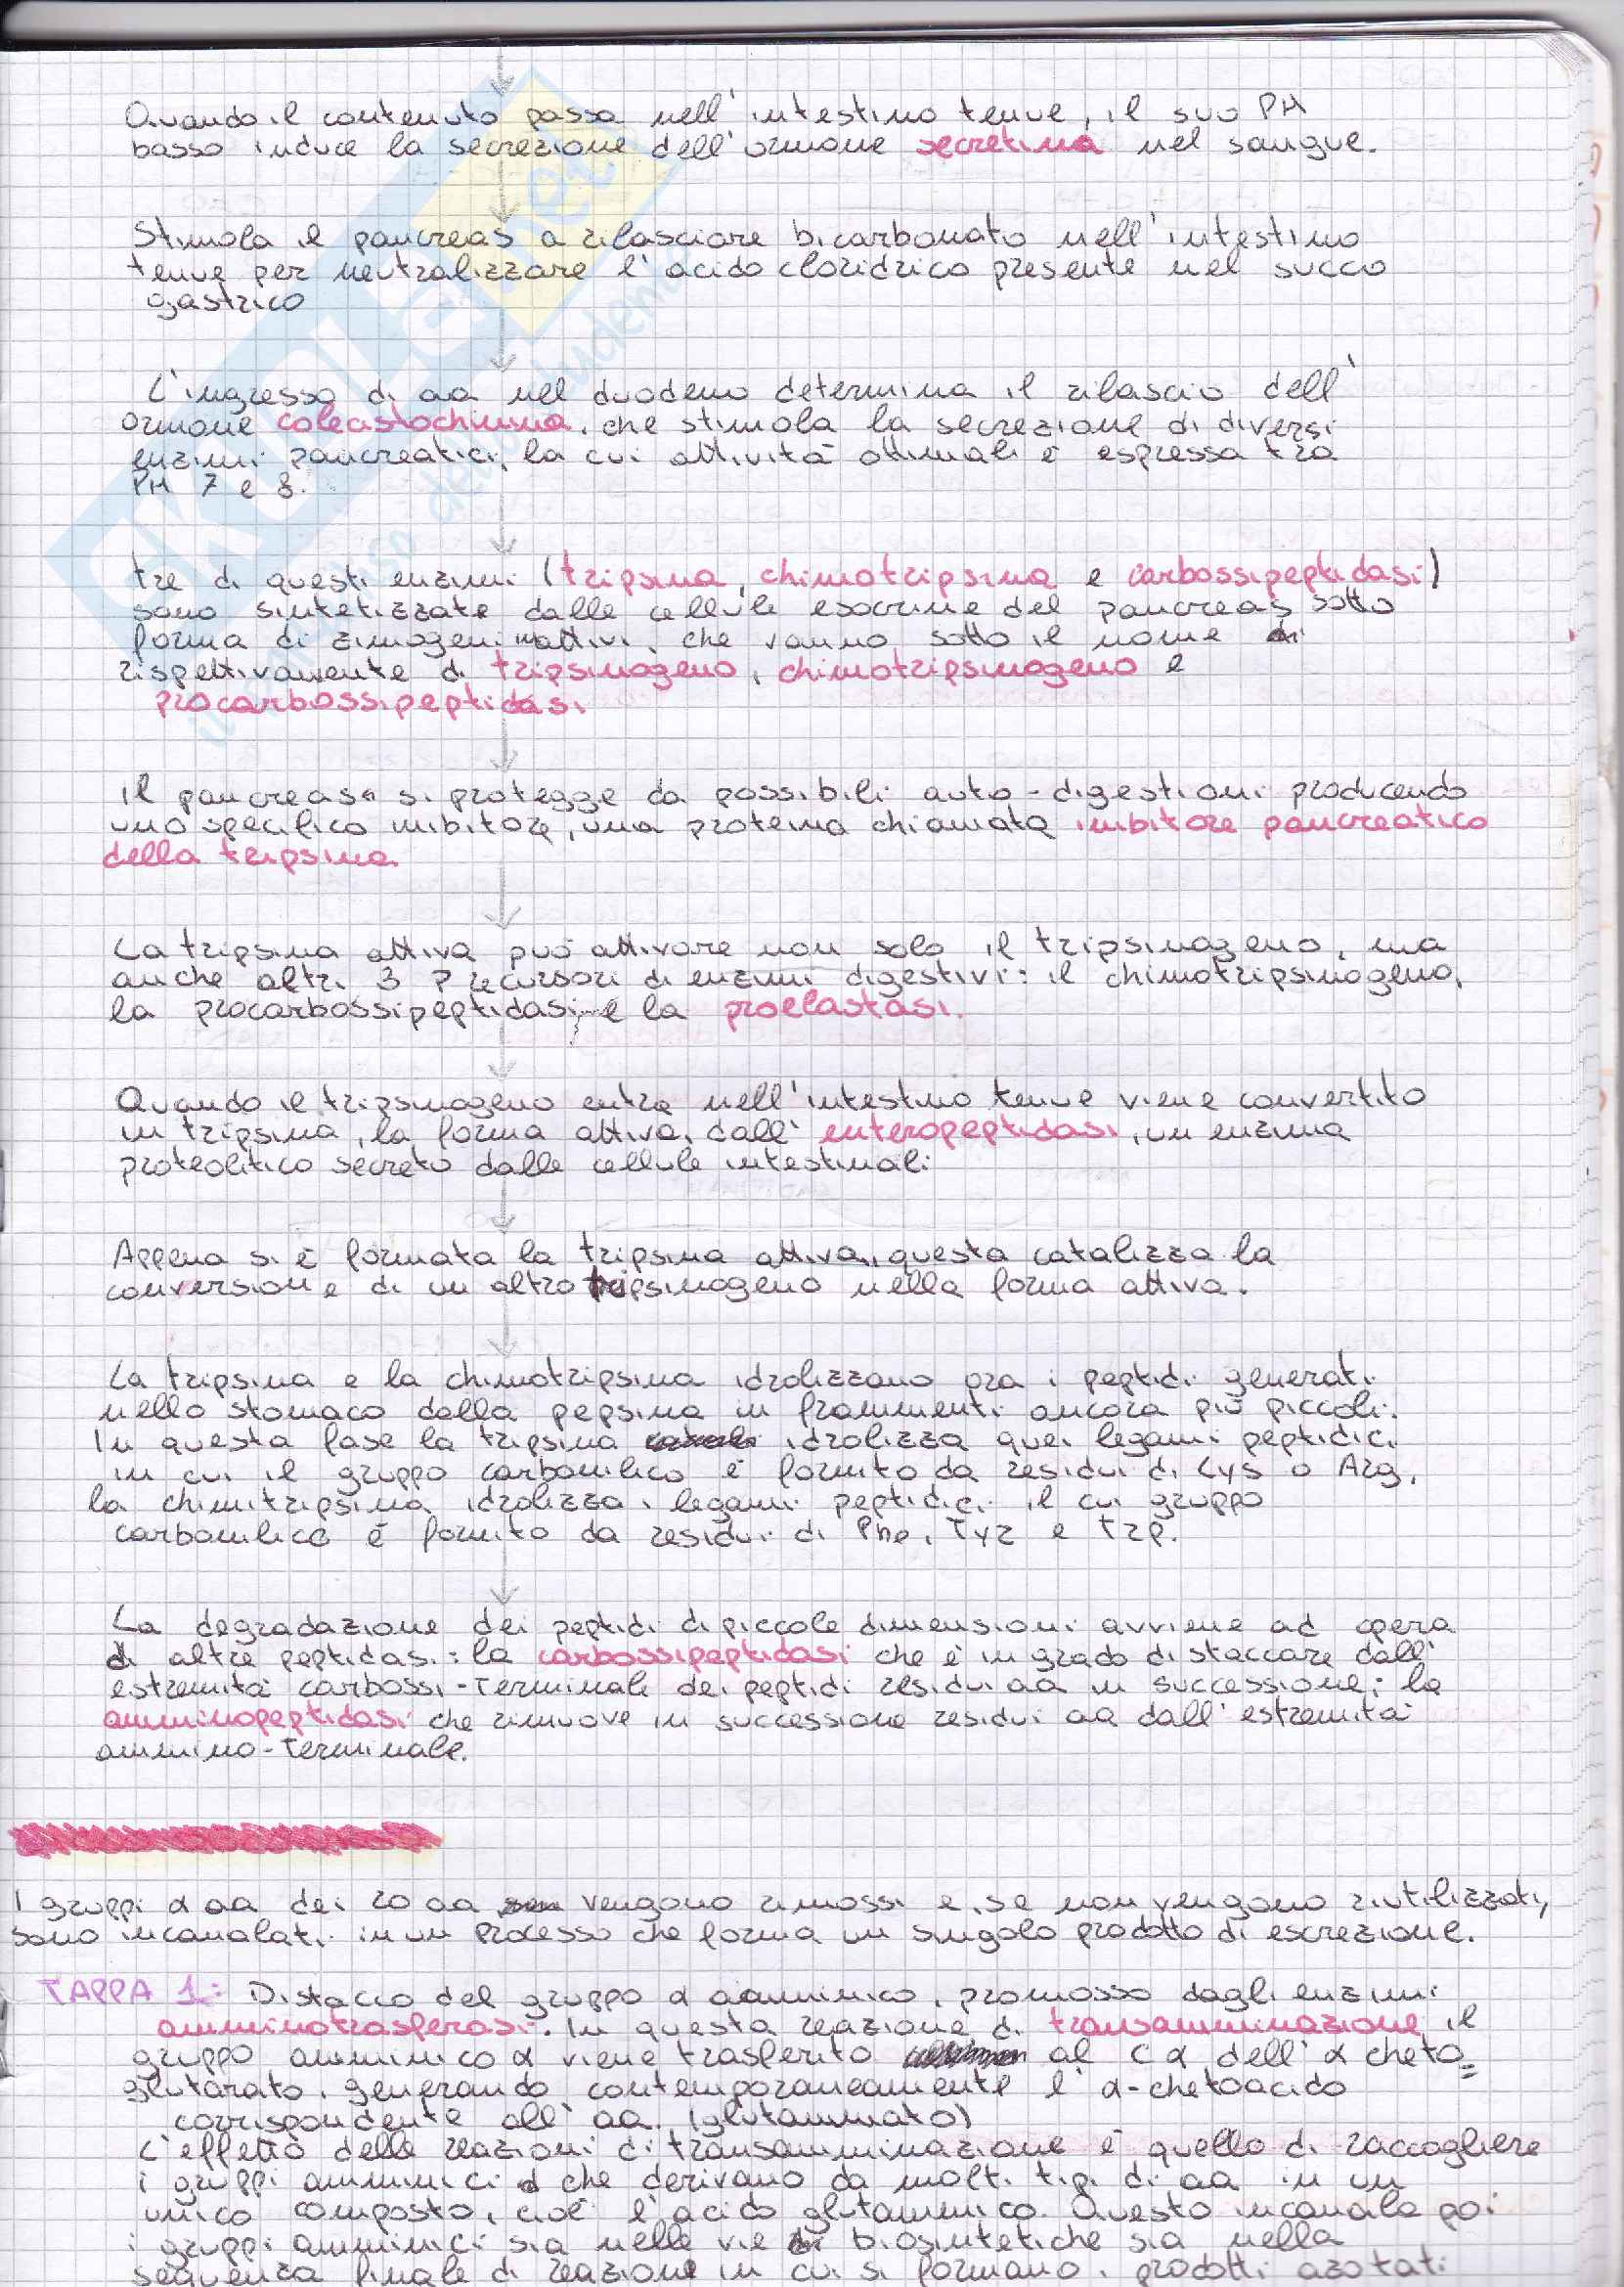 Quando il contenuto passa nell'intestino tenue, il suo PH
basso induce la secrezione dell'ormone secretina nel sangue.
Stimola il pancreas a rilasciare bicarbonato nell'intestino
tenue per neutralizzare l'acido cloridrico presente nel succo
gastrico
L'ingresso di aa nel duodeno determina il rilascio dell'
ormone colecistochinina, che stimola la secrezione di diversi
enzimi pancreatici, la cui attività ottimali è espressa tra
PH 7 e 8.
tre di questi enzimi (tripsina, chimotripsina e carbossipeptidasi)
sono sintetizzate dalle cellule esocrine del pancreas sotto
forma di zimogeni inattivi, che vanno sotto il nome di
rispettivamente di tripsinogeno, chimotripsinogeno e
procarbossipeptidasi
Il pancreas si protegge da possibili auto-digestioni producendo
uno specifico inibitore, una proteina chiamata inibitore pancreatico
della tripsina
La tripsina attiva può attivare non solo il tripsinogeno, ma
anche altri 3 Precursori di enzimi digestivi: il chimotripsinogeno,
la procarbossipeptidasi e la proelastasi.
Quando il tripsinogeno entra nell'intestino tenue viene convertito
in tripsina, la forma attiva, dall'enteropeptidasi, un enzima
proteolitico secreto dalle cellule intestinali
Appena si è formata la tripsina attiva, questa catalizza la
conversione di un altro tripsinogeno nella forma attiva.
La tripsina e la chimotripsina idrolizzano ora i peptidi generati
nello stomaco dalla pepsina in frammenti ancora più piccoli.
In questa fase la tripsina idrolizza quei legami peptidici
in cui il gruppo carbonilico è fornito da residui di Lys o Arg,
la chimitripsina idrolizza i legami peptidici il cui gruppo
carbonilico è fornito da residui di Phe, Tyr e Trp.
La degradazione dei peptidi di piccole dimensioni avviene ad opera
di altre peptidasi: la carbossipeptidasi che è in grado di staccare dall'
estremità carbossi-Terminale dei peptidi residui aa in successione; la
amminopeptidasi che rimuove in successione residui aa dall'estremità
ammino-Terminale.
I gruppi α aa dei 20 aa vengono rimossi e, se non vengono riutilizzati,
sono incanalati in un Processo che forma un singolo prodotto di escrezione.
TAPPA 1: Distacco del gruppo α aamminico, promosso dagli enzimi
amminotrasferasi. In questa reazione di transamminazione il
gruppo amminico α viene trasferito al C α dell'α cheto=
glutarato, generando contemporaneamente l'α-chetoacido
corrispondente all'aa. (glutammato)
L'effetto delle reazioni di transamminazione è quello di raccogliere
i gruppi amminici α che derivano da molti tipi di aa in un
unico composto, cioè l'acido glutammico. Questo incanala poi
i gruppi amminici sia nelle vie biosintetiche sia nella
sequenza finale di reazioni in cui si formano i prodotti azotati